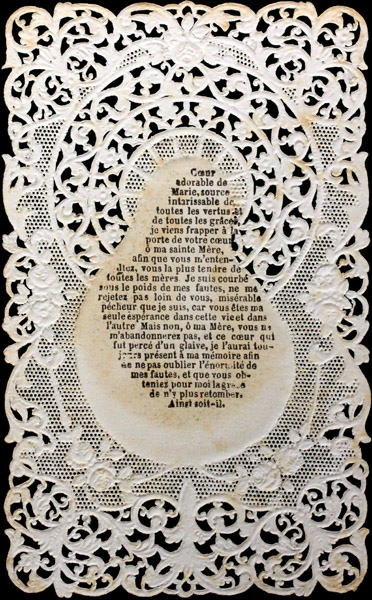 Cœur
adorable de
Marie, source
intarissable de
toutes les vertus et
de toutes les grâces,
je viens frapper à la
porte de votre cœur
ô ma sainte Mère,
afin que vous m'enten-
diez, vous la plus tendre de
toutes les mères. Je suis courbé
sous le poids de mes fautes, ne me
rejetez pas loin de vous, misérable
pécheur que je suis, car vous êtes ma
seule espérance dans cette vie et dans
l'autre Mais non, ô ma Mère, vous ne
m'abandonnerez pas, et ce cœur qui
fut percé d'un glaive, je l'aurai tou-
jours présent à ma mémoire afin
de ne pas oublier l'énormité de
mes fautes, et que vous ob-
teniez pour moi la grâce
de n'y plus retomber.
Ainsi soit-il.